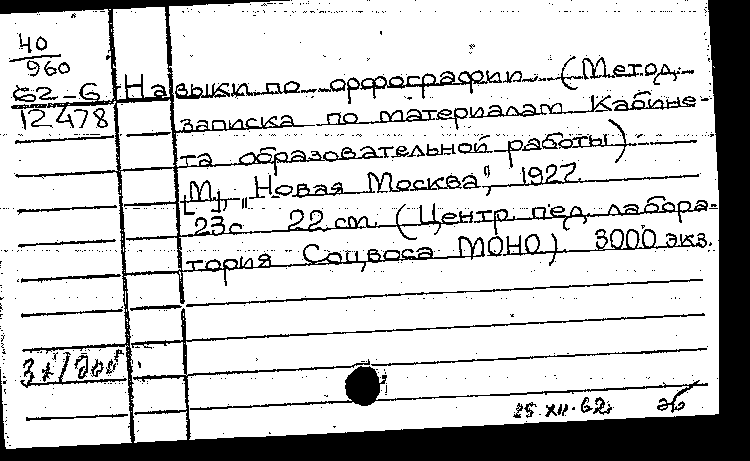 40
960
62-6 Навыки по орфографии. (Метод.
12478 записка по материалам Кабине-
та образовательной работы)
[М], „Новая Москва", 1927.
23с 22 см. (Центр. пед. лабора-
тория Соцвоса МОНО). 3000 экз.
25.XII.62г